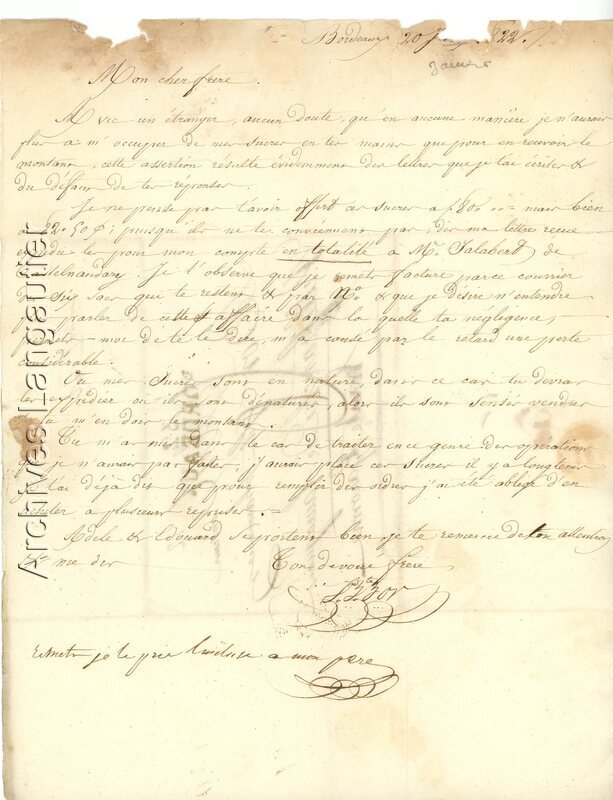 Bordeaux 20 22.
Janvier
Mon cher frere.
Avec un étranger, aucun doute, qu'en aucune manière je n'aurais
plus à m'occuper de mes sucres en tes mains que pour en recevoir le
montant, cette assertion resulte évidemment des lettres que je t'ai écrites &
du défaut de tes reponses.
Je ne pense pas t'avoir offert ces sucres à mais bien
à 82.50 puisqu'ils ne te conviennent pas, dès ma lettre reçue
les pour mon compte en totalité à Mr. Salabert de
Je t'observe que je remets facture par ce courrier
Six sacs qui te restent & par No. & que je désire n'entendre
parler de cette affaire dans la quelle ta negligence,
moi de te le dire, m'a causé par le retard une perte
considérable.
Ou mes Sucres sont en nature, dans ce cas tu devras
les expédier ou ils sont dénaturés, alors ils sont sensés vendus
tu m'en dois le montant.
Tu m'as mis dans le cas de traiter en ce genre des opérations
que je n'aurais pas faites, j'aurais placé ces Sucres il y a longtems
je t'ai déjà dit que pour remplir des ordres j'ai été obligé d'en
acheter à plusieurs reprises. =
Adele & Edouard se portent bien, je te remercie de ton attention
& me dis
Ton devoué frere
Remets je te prie l'incluse a mon pere
Archives Langaufier